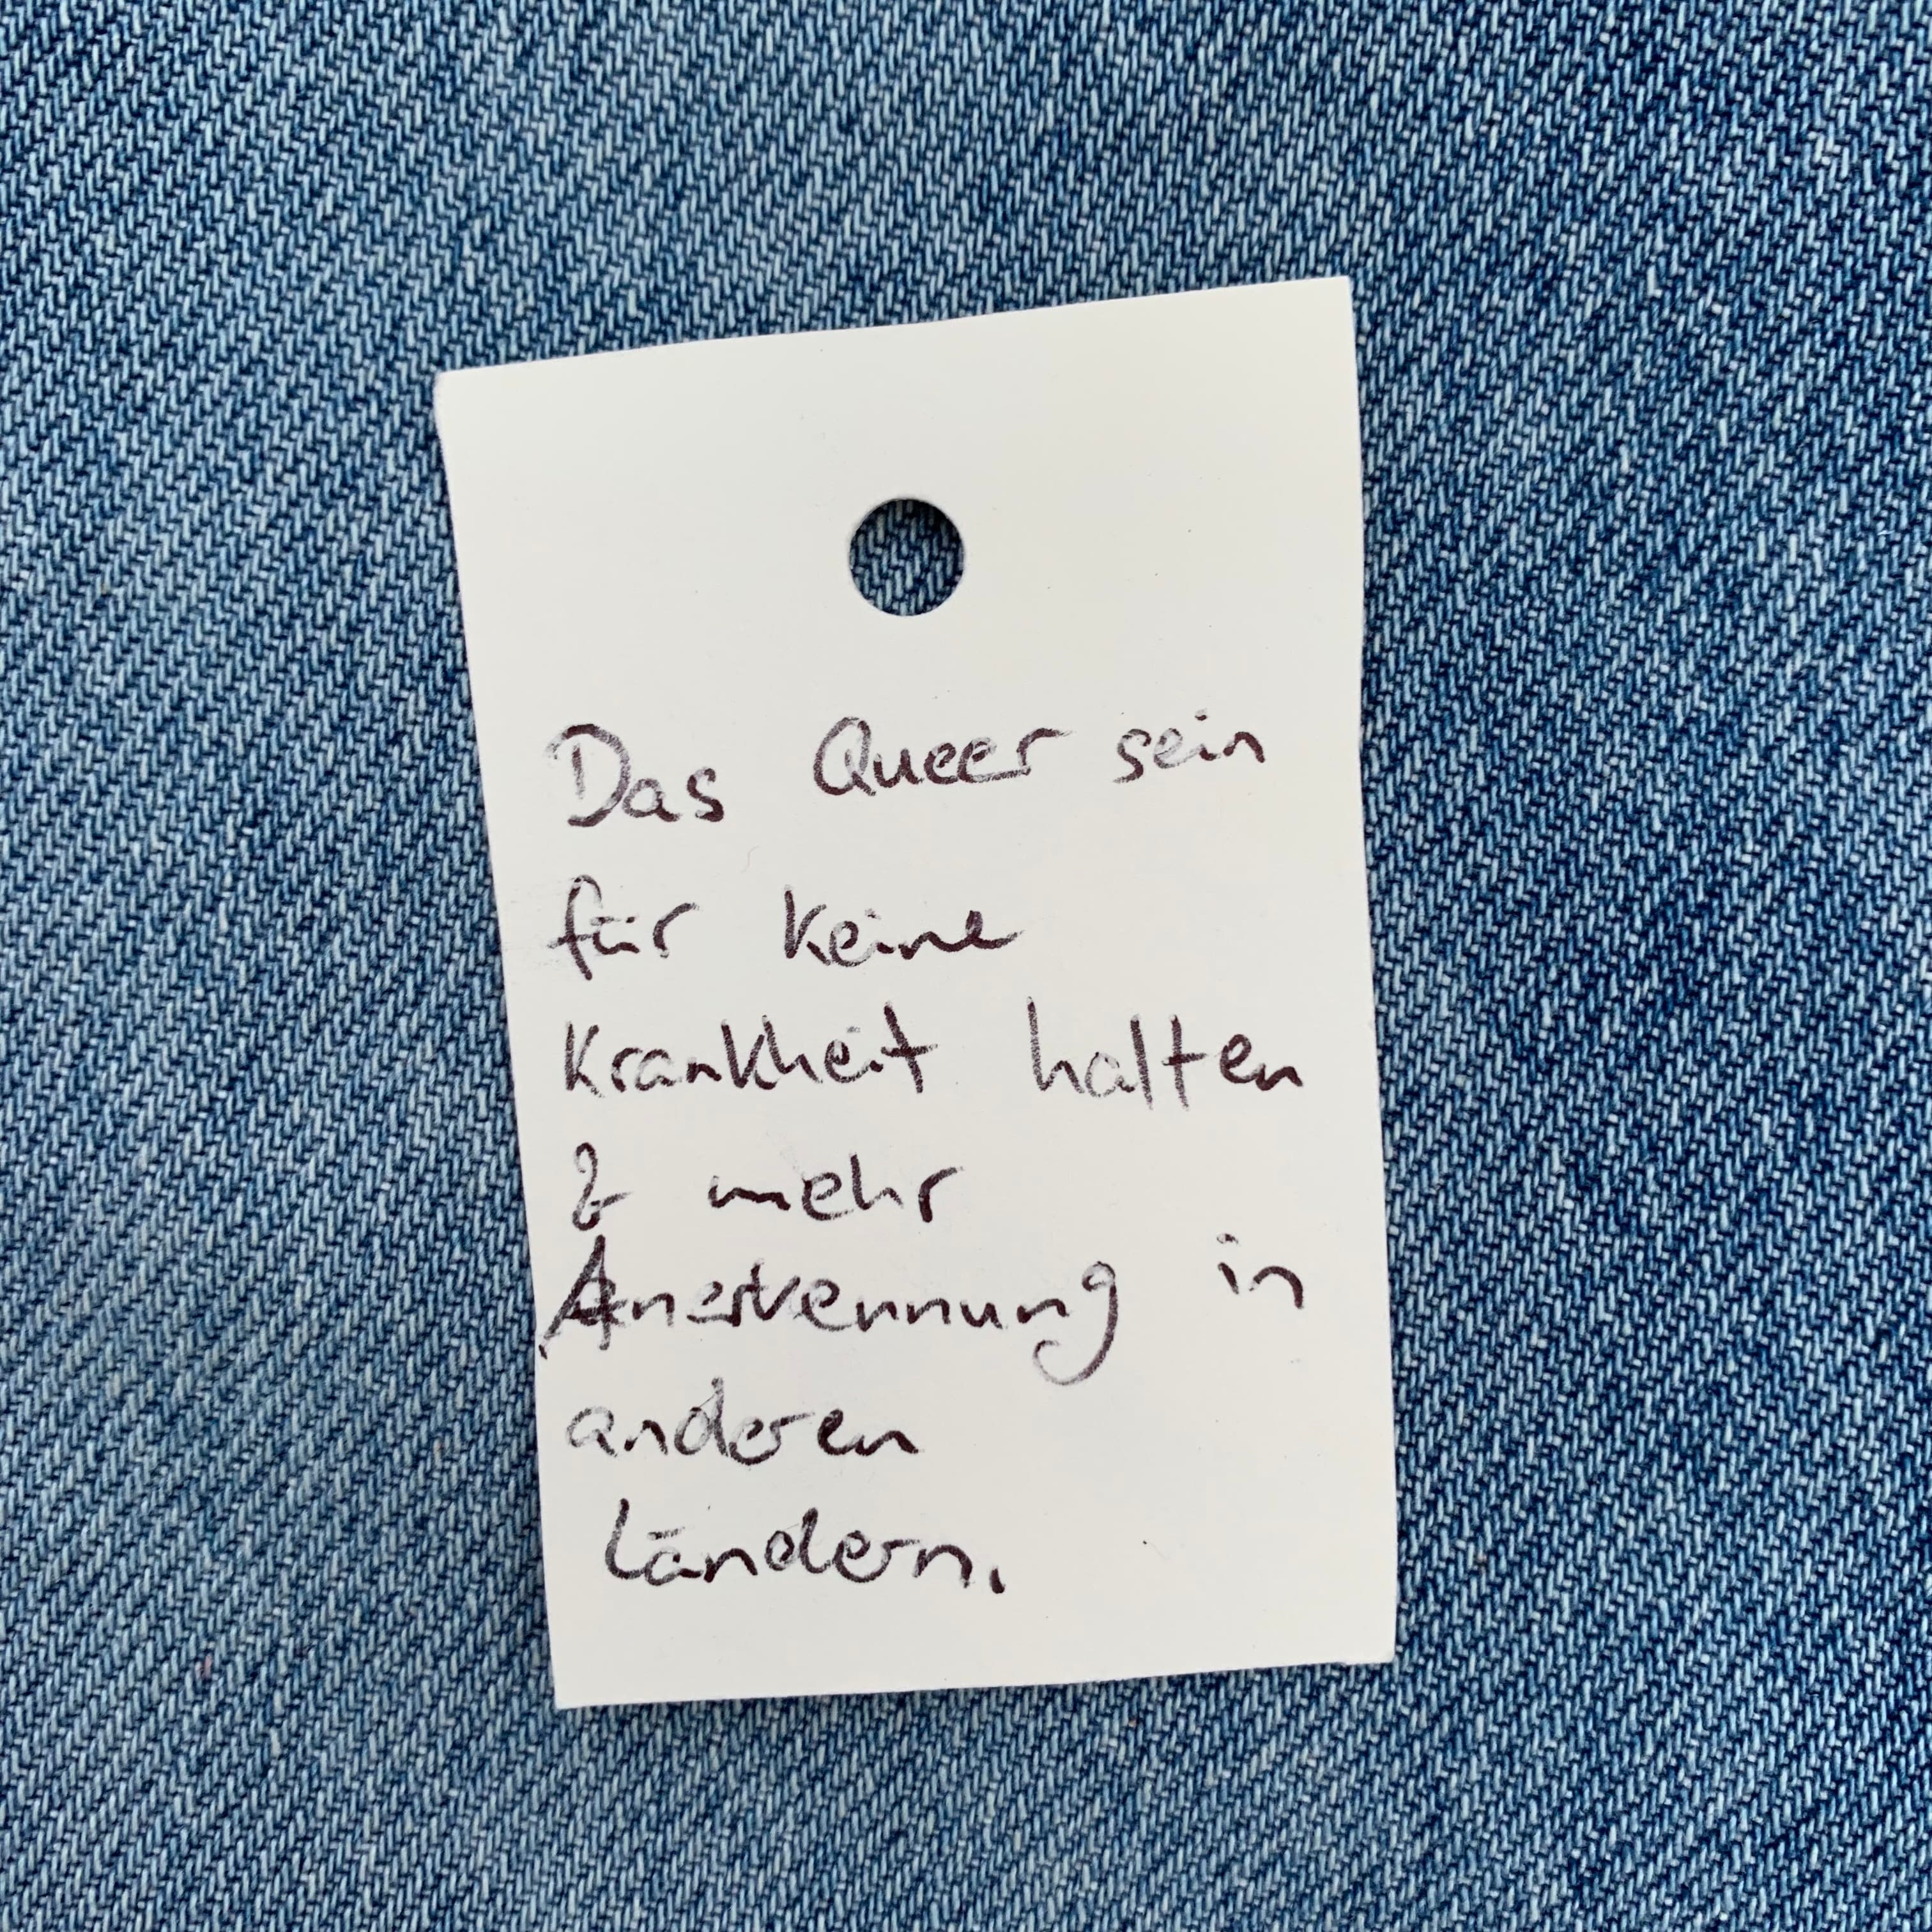 Das Queer sein
für keine
Krankheit halten
& mehr
Anerkennung in
anderen
Ländern.